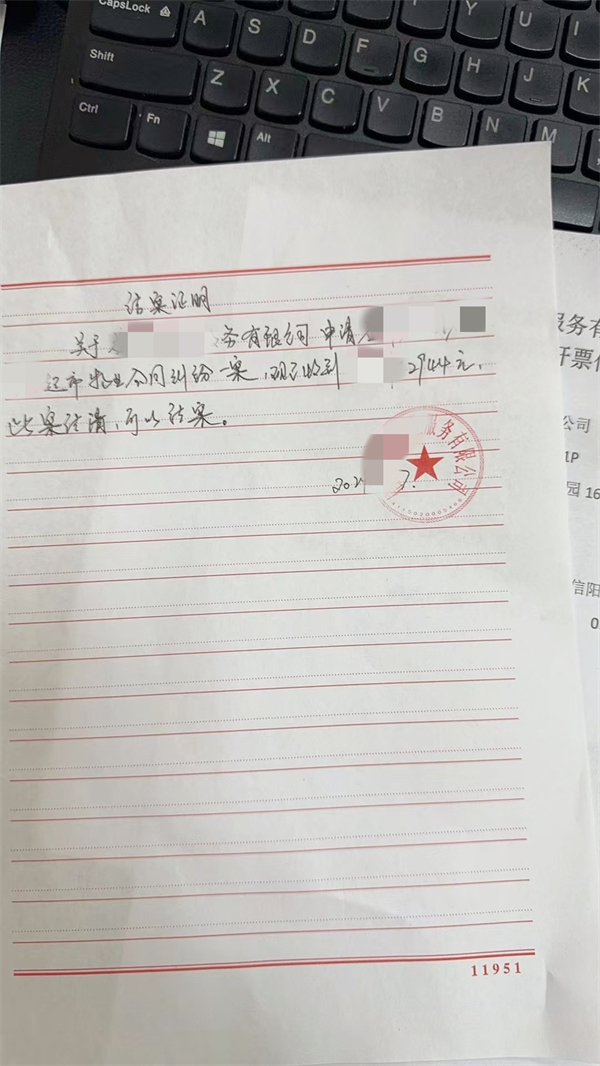 CapsLock A S D F G H J K
Y U I
Shift Z X C V B N M
Ctrl Fn Alt
结案证明
关于 务有限公司 申请
物业合同纠纷一案,现已收到 2944元,
此案结清,可以结案。
服务有限公司
202 7.
服务有
开票
公司
1P
园 16
信阳
0
11951